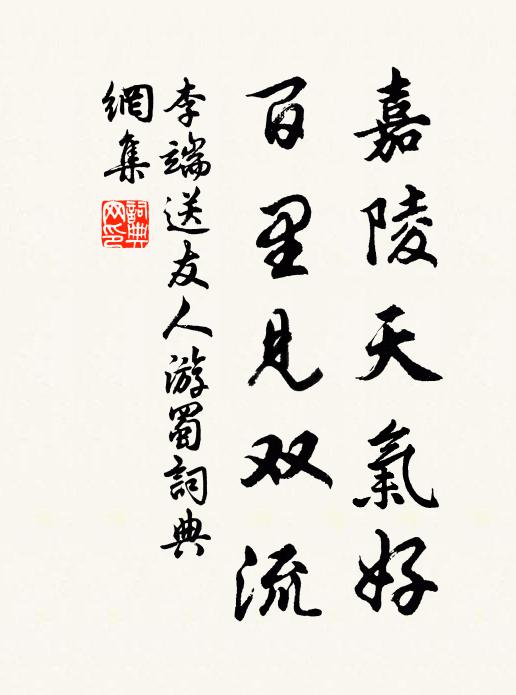 嘉陵天氣好
百里見双流
李端送友人游蜀詞典
網集
詞典
网印